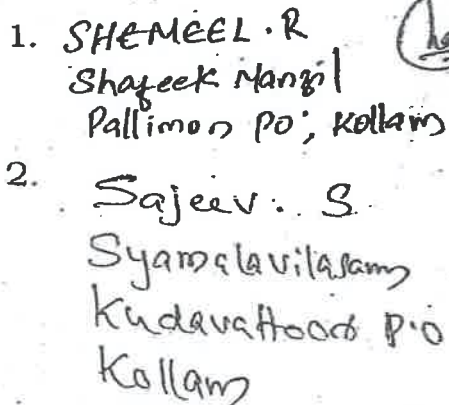 1. SHEMEEL . R
Shafeek Manzil
Pallimon PO; Kollam
2. Sajeev. S
Syamalavilasam
Kudavattoor P.O
Kollam